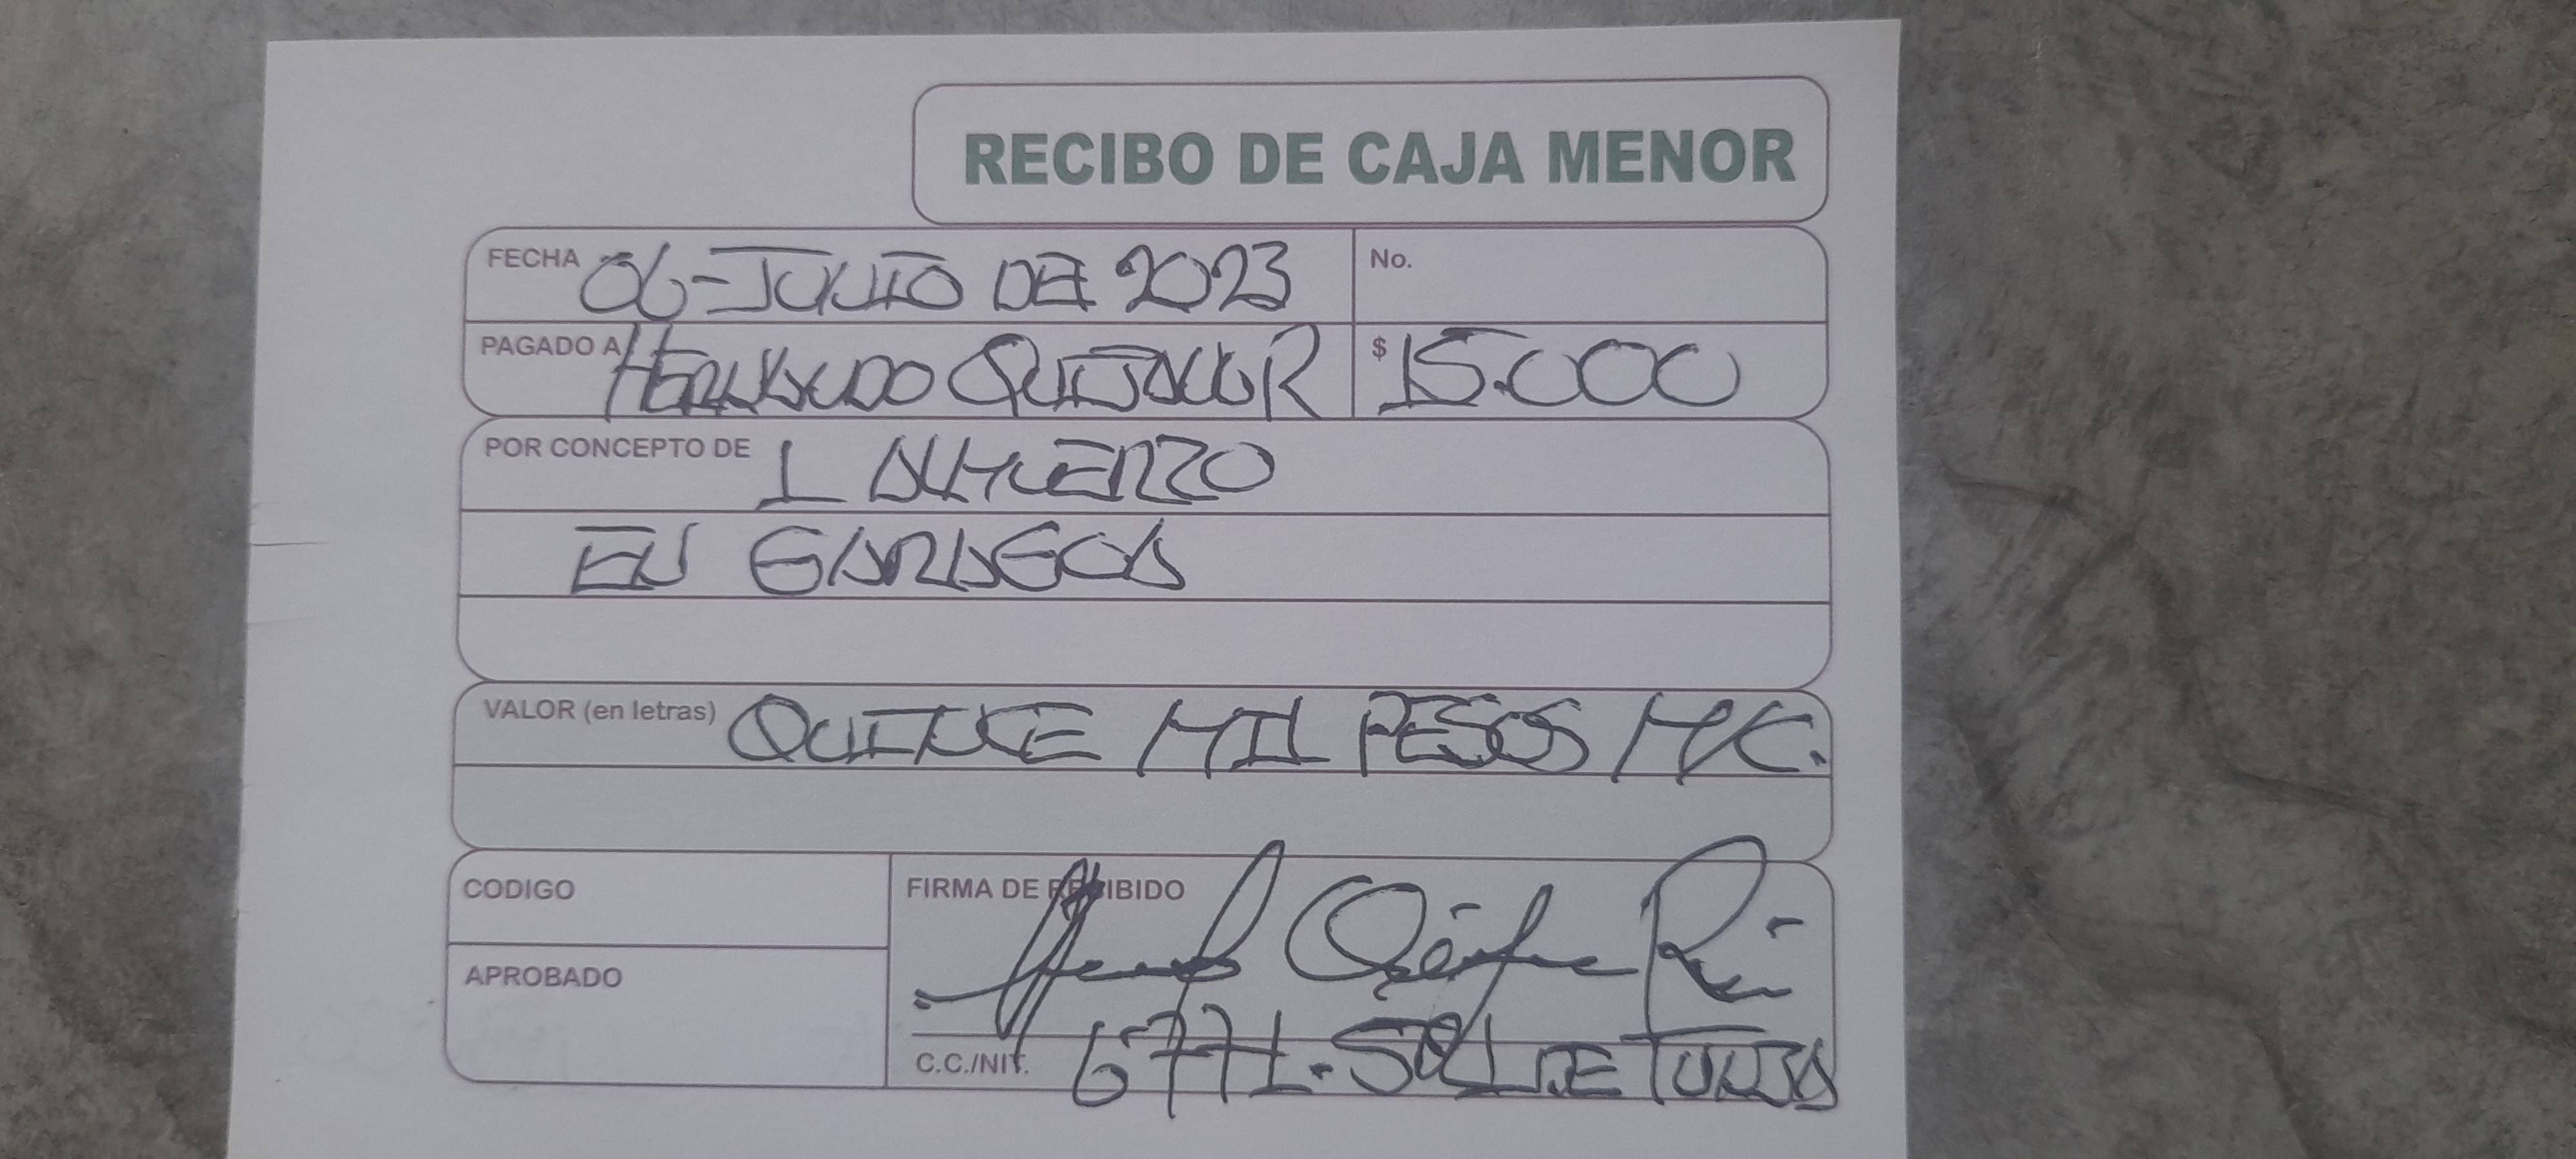 RECIBO DE CAJA MENOR
FECHA 06-JULIO DE 2023 No.
PAGADO A HERNANDO QUIJANO R $ 15.000
POR CONCEPTO DE 1 ALMUERZO
EN GARAGOA
VALOR (en letras) QUINCE MIL PESOS M/C.
CODIGO
FIRMA DE RECIBIDO
APROBADO
C.C./NIT. DE TUNJA